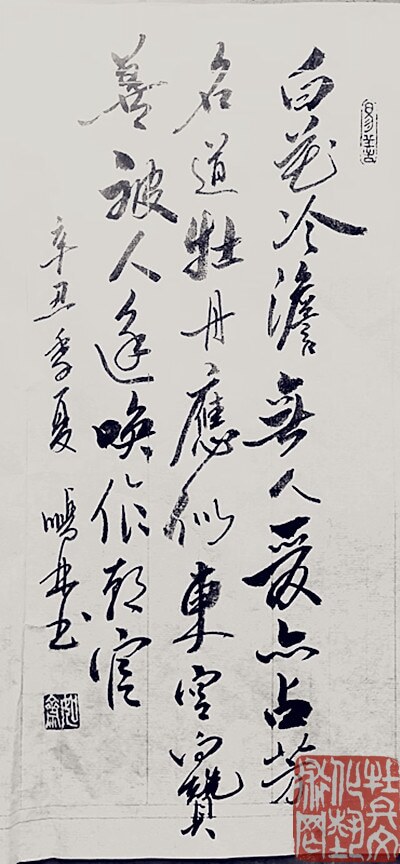 白花冷澹無人愛亦占芳
名道牡丹應似東宮白贊
善被人還喚作朝官
辛丑季夏 书